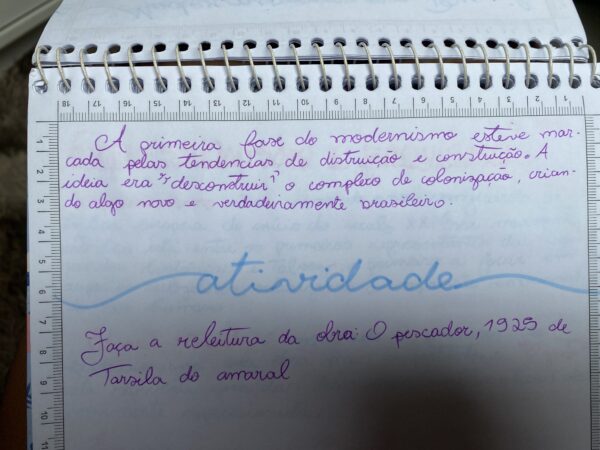 A primeira fase do modernismo esteve mar-
cada pelas tendencias de distruição e construição. A
ideia era "desconstruir" o complexo de colonização, crian-
do algo novo e verdadeiramente brasileiro.
atividade
Faça a releitura da obra: O pescador, 1925 de
Tarsila do amaral